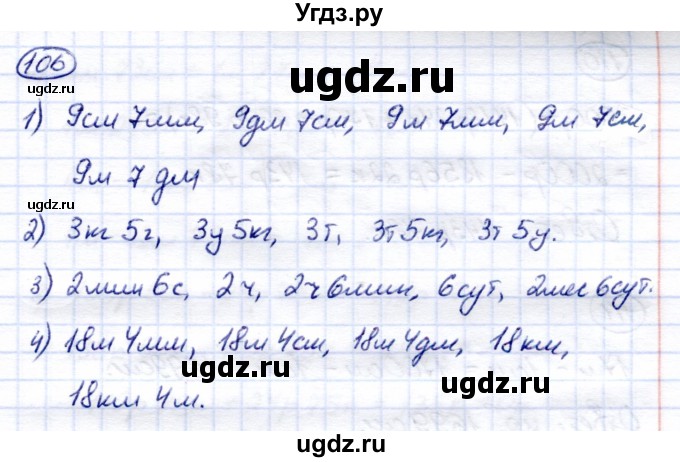 Угдз.ру
106
ugdz.ru
1) 9см 7мм, 9дм 7см, 9м 7мм, 9м 7см,
9м 7 дм
ugdz.ru
2) 3кг 5г, 3ц 5кг, 3т, 3т 5кг, 3т 5ц.
ugdz.ru
3) 2мин 6с, 2ч, 2ч 6мин, 6сут, 2мес 6сут.
4) 18м 4мм, 18м 4см, 18м 4дм, 18км,
ugdz.ru ugdz.ru
18км 4м.
ugdz.ru